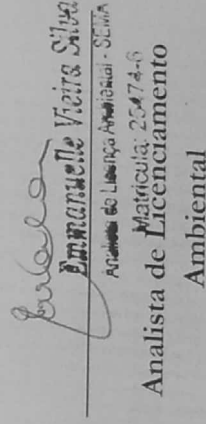 Emmanuelle Vieira Silva
Analista de Licença Ambiental - SEMA
Matrícula: 25474-6
Analista de Licenciamento
Ambiental